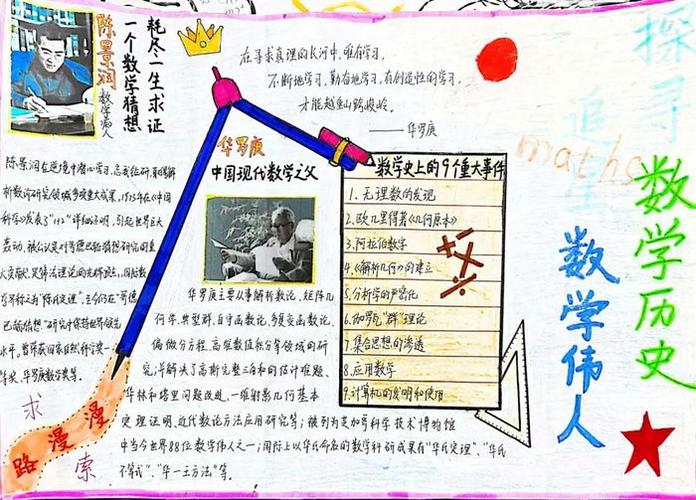 探寻
数学历史
追星
数学伟人
maths
耗尽一生求证
一个数学猜想
陈景润
数学痴人
在寻求真理的长河中,唯有学习,
不断地学习,勤奋地学习,有创造性的学习,
才能越重山跨峻岭。
——华罗庚
陈景润在逆境中潜心学习,忘我钻研,取得解
析数论研究领域多项重大成果,1973年在《中国
科学》发表了"1+2"详细证明,引起世界巨大
轰动,被公认是对哥德巴赫猜想研究的重
大贡献,是筛法理论的光辉顶点,国际数
学界称之为"陈氏定理",至今仍在"哥德
巴赫猜想"研究中保持世界领先
水平,曾获国家自然科学奖一
等奖、华罗庚数学奖等。
华罗庚
中国现代数学之父
华罗庚主要从事解析数论、矩阵几
何学、典型群、自守函数论、多复变函数论、
偏微分方程、高维数值积分等领域的研
究;并解决了高斯完整三角和的估计难题、
华林和塔里问题改进、一维射影几何基本
定理证明、近代数论方法应用研究等;被列为芝加哥科学技术博物馆
中当今世界88位数学伟人之一;国际上以华氏命名的数学科研成果有"华氏定理"、"华氏
不等式"、"华—王方法"等。
数学史上的9个重大事件
1、无理数的发现
2.欧几里得著《几何原本》
3.阿拉伯数字
4.《解析几何》的建立
5.分析学的严密化
6.伽罗瓦"群"理论
7.集合思想的渗透
8.应用数学
9.计算机的发明和使用
求
索
路漫漫